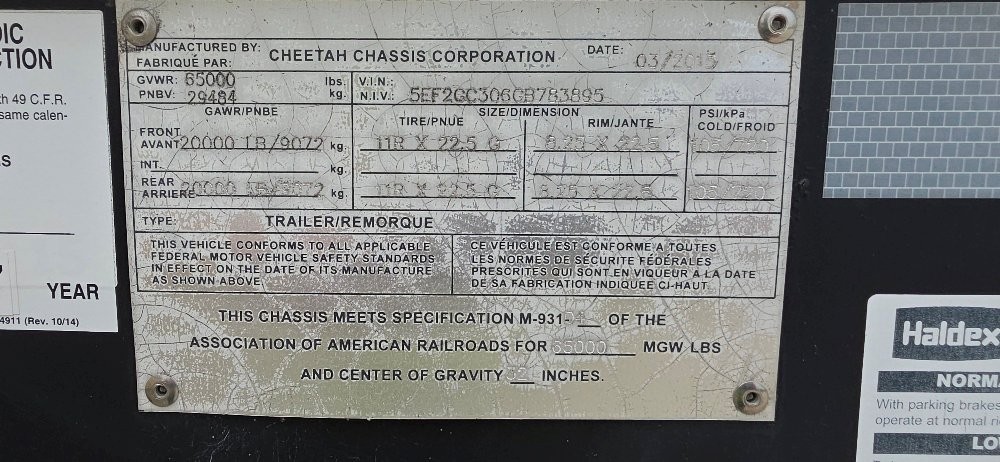 DIC
CTION
th 49 C.F.R.
same calen-
S
YEAR
4911 (Rev. 10/14)
MANUFACTURED BY: CHEETAH CHASSIS CORPORATION DATE: 03/2015
FABRIQUÉ PAR:
GVWR: 65000 lbs. V.I.N.:
PNBV: 29484 kg. N.I.V.: 5EF2GC306GB783895
GAWR/PNBE SIZE/DIMENSION PSI/kPa
TIRE/PNUE RIM/JANTE COLD/FROID
FRONT
AVANT 20000 LB/9072 kg. 11R X 22.5 G 8.25 X 22.5
INT. kg.
REAR
ARRIERE 20000 LB/9072 kg. 11R X 22.5 G 8.25 X 22.5
TYPE: TRAILER/REMORQUE
THIS VEHICLE CONFORMS TO ALL APPLICABLE
FEDERAL MOTOR VEHICLE SAFETY STANDARDS
IN EFFECT ON THE DATE OF ITS MANUFACTURE
AS SHOWN ABOVE
CE VÉHICULE EST CONFORME A TOUTES
LES NORMES DE SÉCURITE FÉDÉRALES
PRESCRITES QUI SONT EN VIQUEUR A LA DATE
DE SA FABRICATION INDIQUEE CI-HAUT.
THIS CHASSIS MEETS SPECIFICATION M-931- OF THE
ASSOCIATION OF AMERICAN RAILROADS FOR 65000 MGW LBS
AND CENTER OF GRAVITY INCHES.
Haldex
NORMA
With parking brakes
operate at normal ri
LO